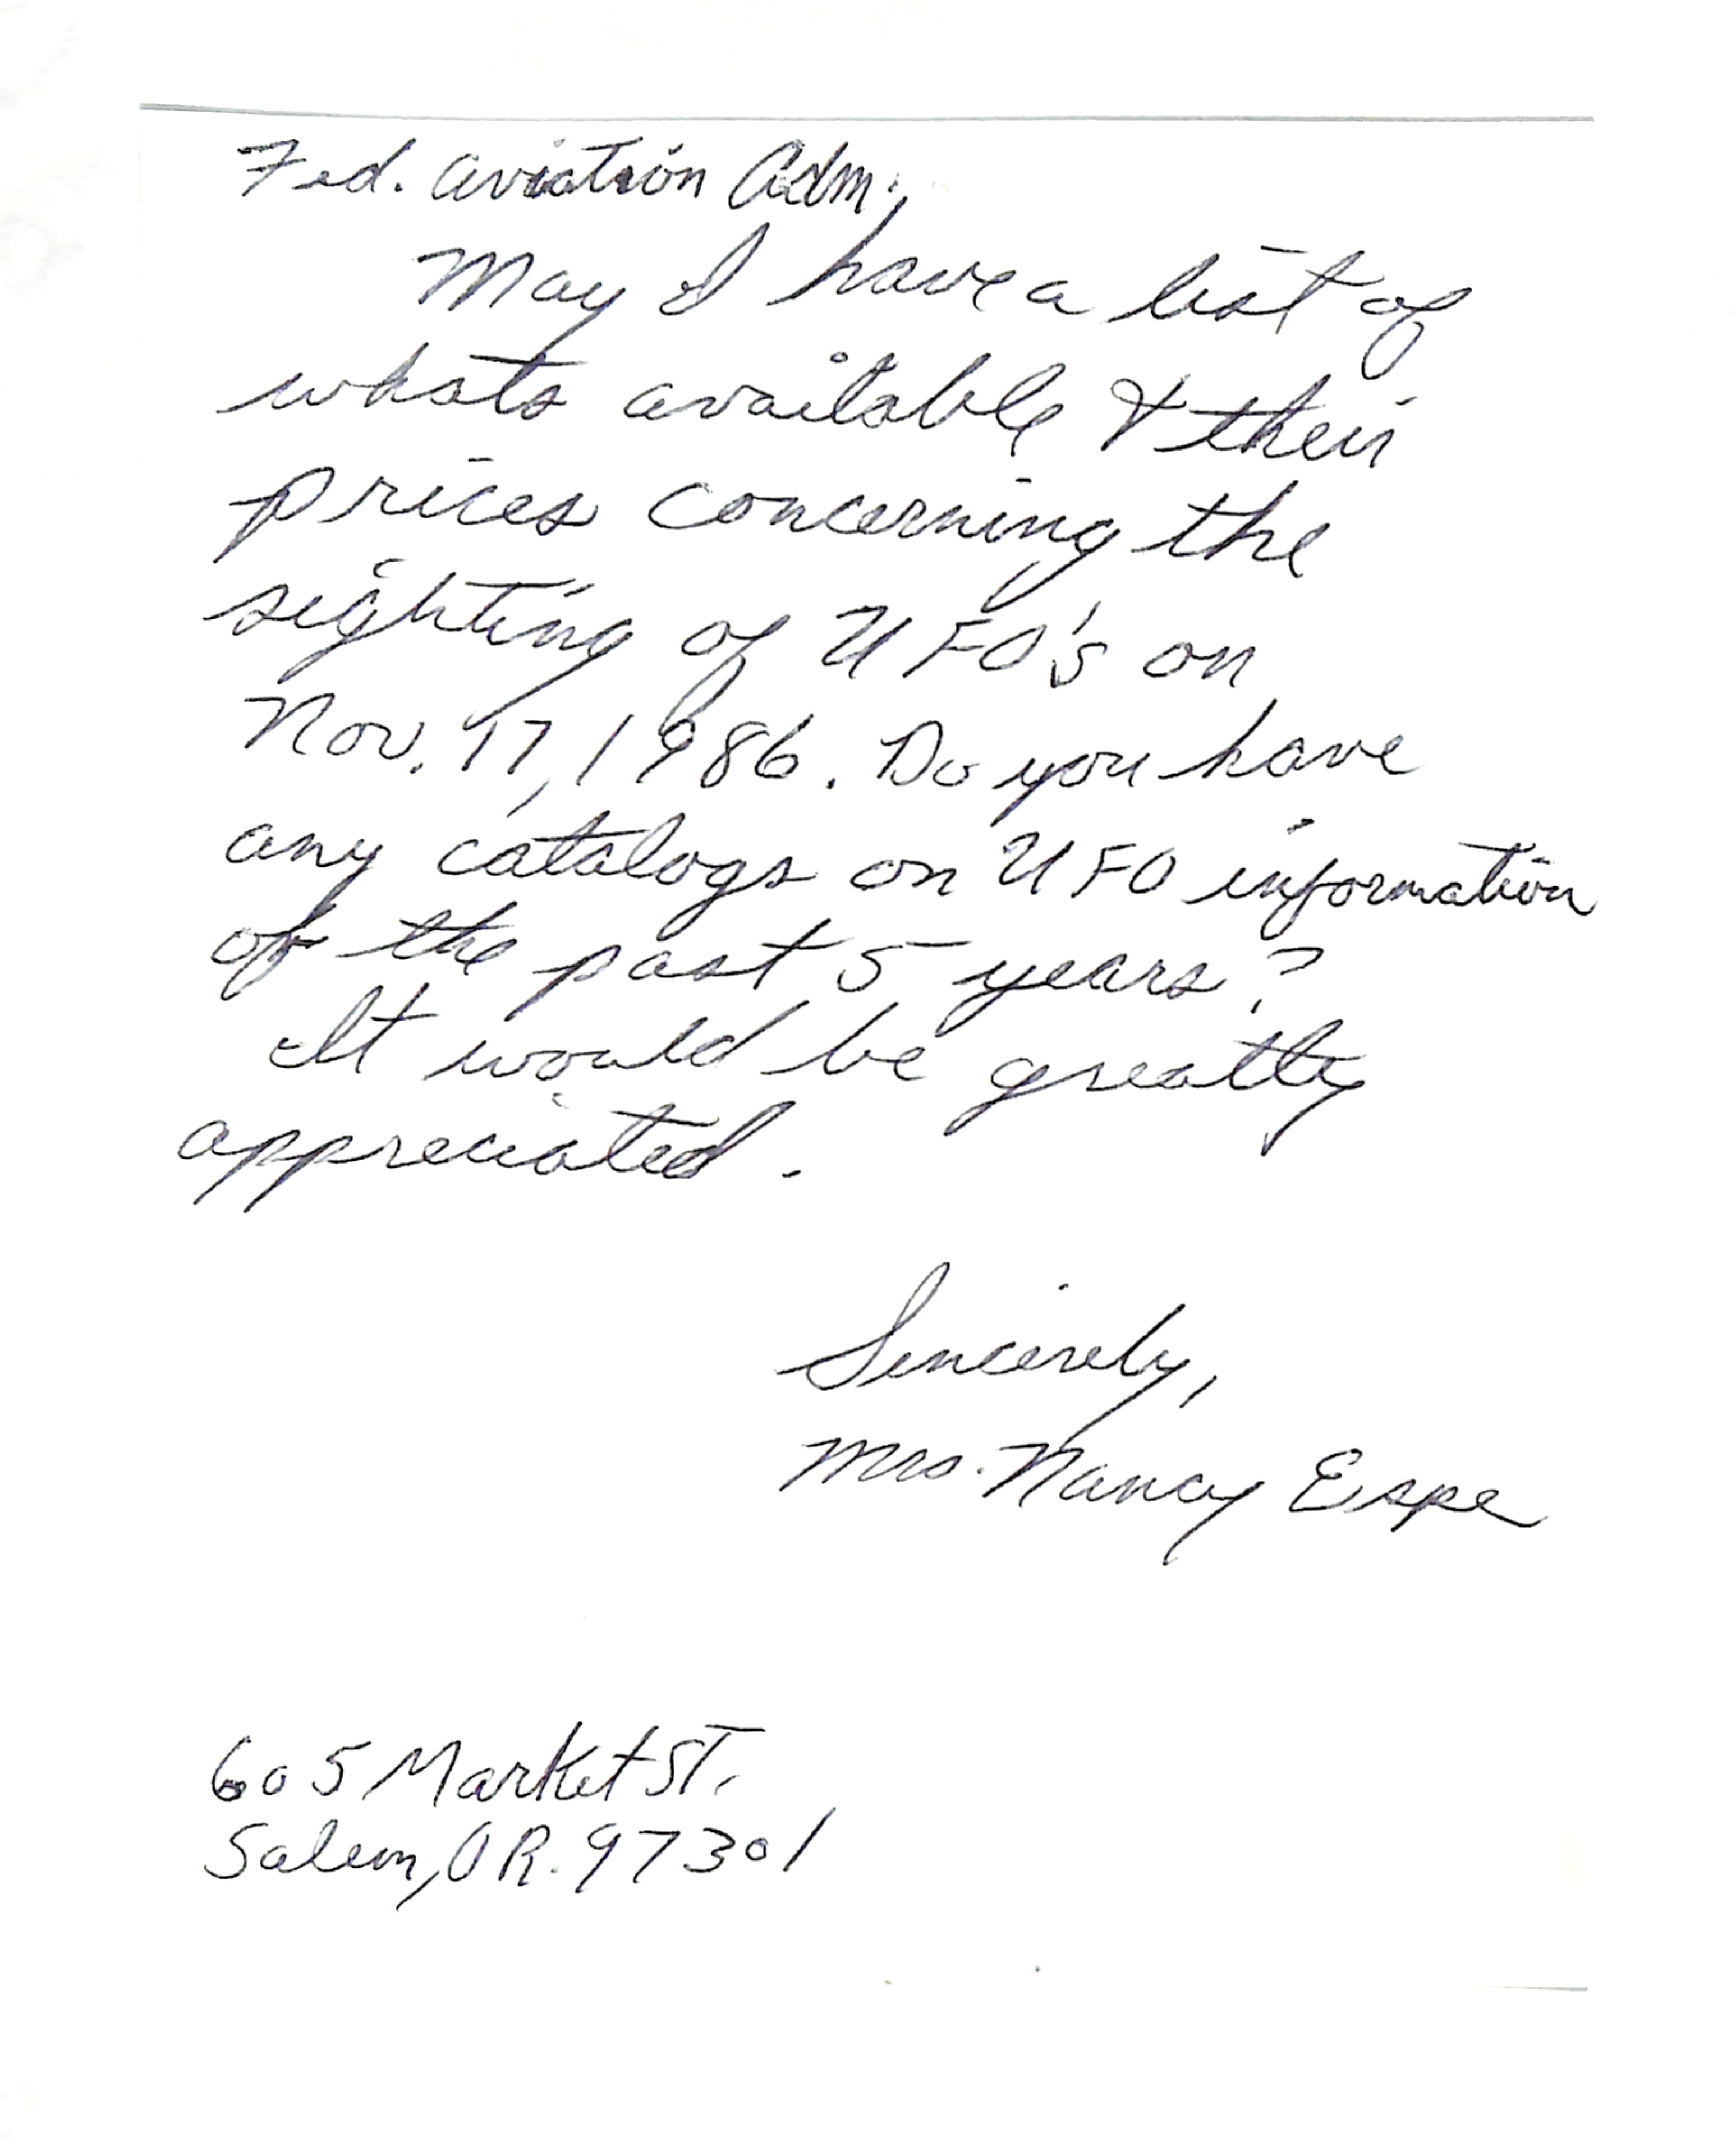 Fed. Aviation Adm.
May I have a list of
whats available & their
prices concerning the
sighting of UFO's on
Nov. 17, 1986. Do you have
any catalogs on UFO information
of the past 5 years?
It would be greatly
appreciated.
Sincerely,
Mrs. Nancy Espe
605 Market ST.
Salem, OR. 97301